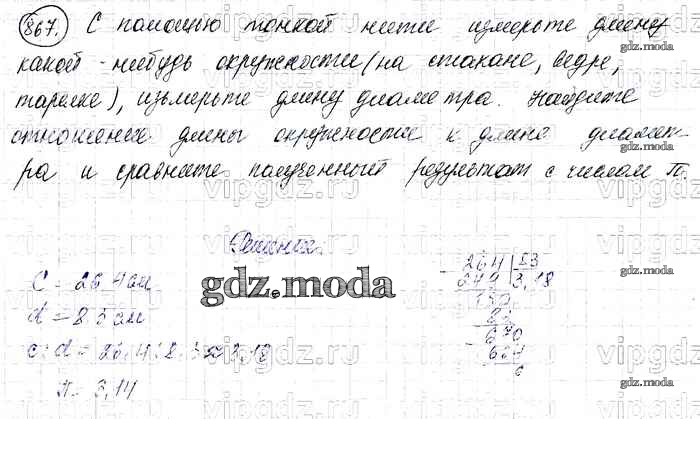 867. С помощью тонкой нити измерьте длину
какой-нибудь окружности (на стакане, ведре,
тарелке), измерьте длину диаметра. Найдите
отношение длины окружности к длине диамет-
ра и сравните полученный результат с числом π.
Решение
C = 26,4 см
d = 8,3 см
c : d = 26,4 : 8,3 ≈ 3,18
π = 3,14
264 | 83
249 | 3,18
150
83
670
664
6
gdz.moda
gdz.moda
gdz.moda
gdz.moda
gdz.moda
vipgdz.ru